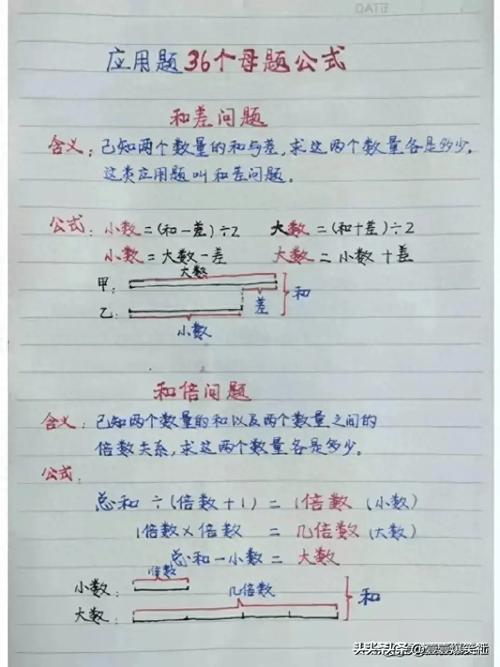 应用题36个母题公式
和差问题
含义：已知两个数量的和与差，求这两个数量各是多少，
这类应用题叫和差问题。
公式：小数=(和-差)÷2 大数=(和+差)÷2
小数=大数-差 大数=小数+差
大数
甲：
差
和
乙：
小数
和倍问题
含义：已知两个数量的和以及两个数量之间的
倍数关系，求这两个数量各是多少。
公式
总和÷(倍数+1)=1倍数(小数)
1倍数×倍数=几倍数(大数)
总和-小数=大数
小数：
几倍数
和
大数：
头条